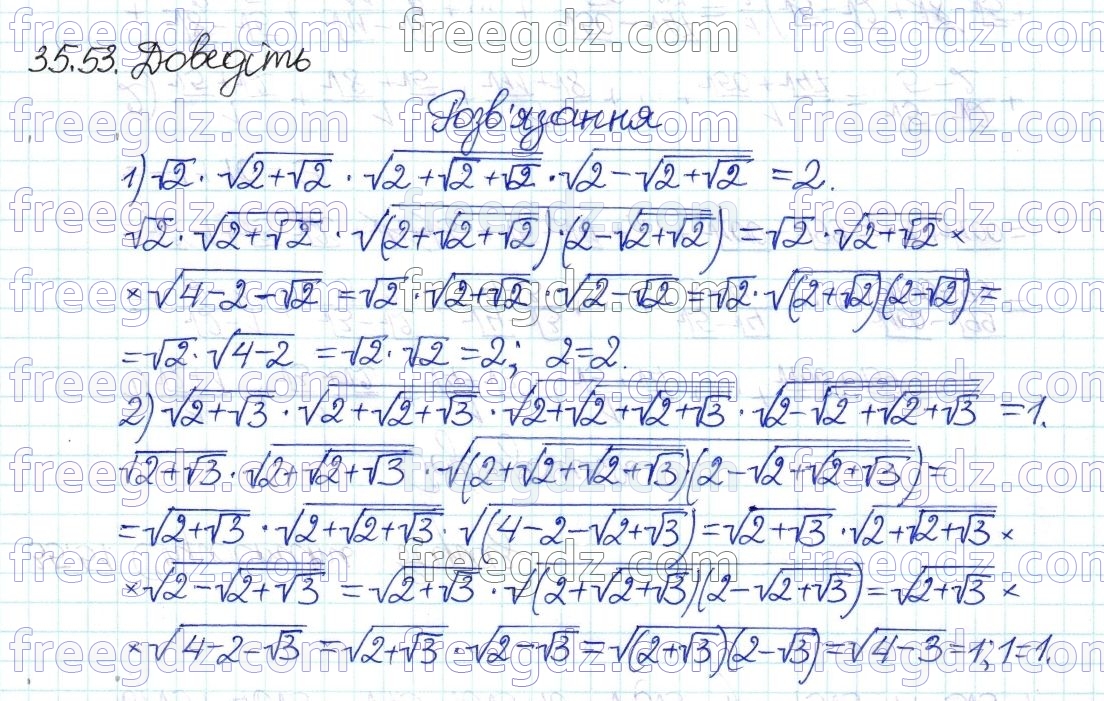 35.53. Доведіть
Розв'язання
1) √2 · √(2+√2) · √(2+√(2+√2)) · √(2-√(2+√2)) = 2.
√2 · √(2+√2) · √((2+√(2+√2))·(2-√(2+√2))) = √2 · √(2+√2) ×
× √(4-2-√2) = √2 · √(2+√2) · √(2-√2) = √2 · √((2+√2)(2-√2)) =
= √2 · √(4-2) = √2 · √2 = 2; 2=2.
2) √(2+√3) · √(2+√(2+√3)) · √(2+√(2+√(2+√3))) · √(2-√(2+√(2+√3))) = 1.
√(2+√3) · √(2+√(2+√3)) · √((2+√(2+√(2+√3)))(2-√(2+√(2+√3)))) =
= √(2+√3) · √(2+√(2+√3)) · √((4-2-√(2+√3)) = √(2+√3) · √(2+√(2+√3)) ×
× √(2-√(2+√3)) = √(2+√3) · √((2+√(2+√3))(2-√(2+√3))) = √(2+√3) ×
× √(4-2-√3) = √(2+√3) · √(2-√3) = √((2+√3)(2-√3)) = √(4-3) = 1; 1=1.
freegdz.com